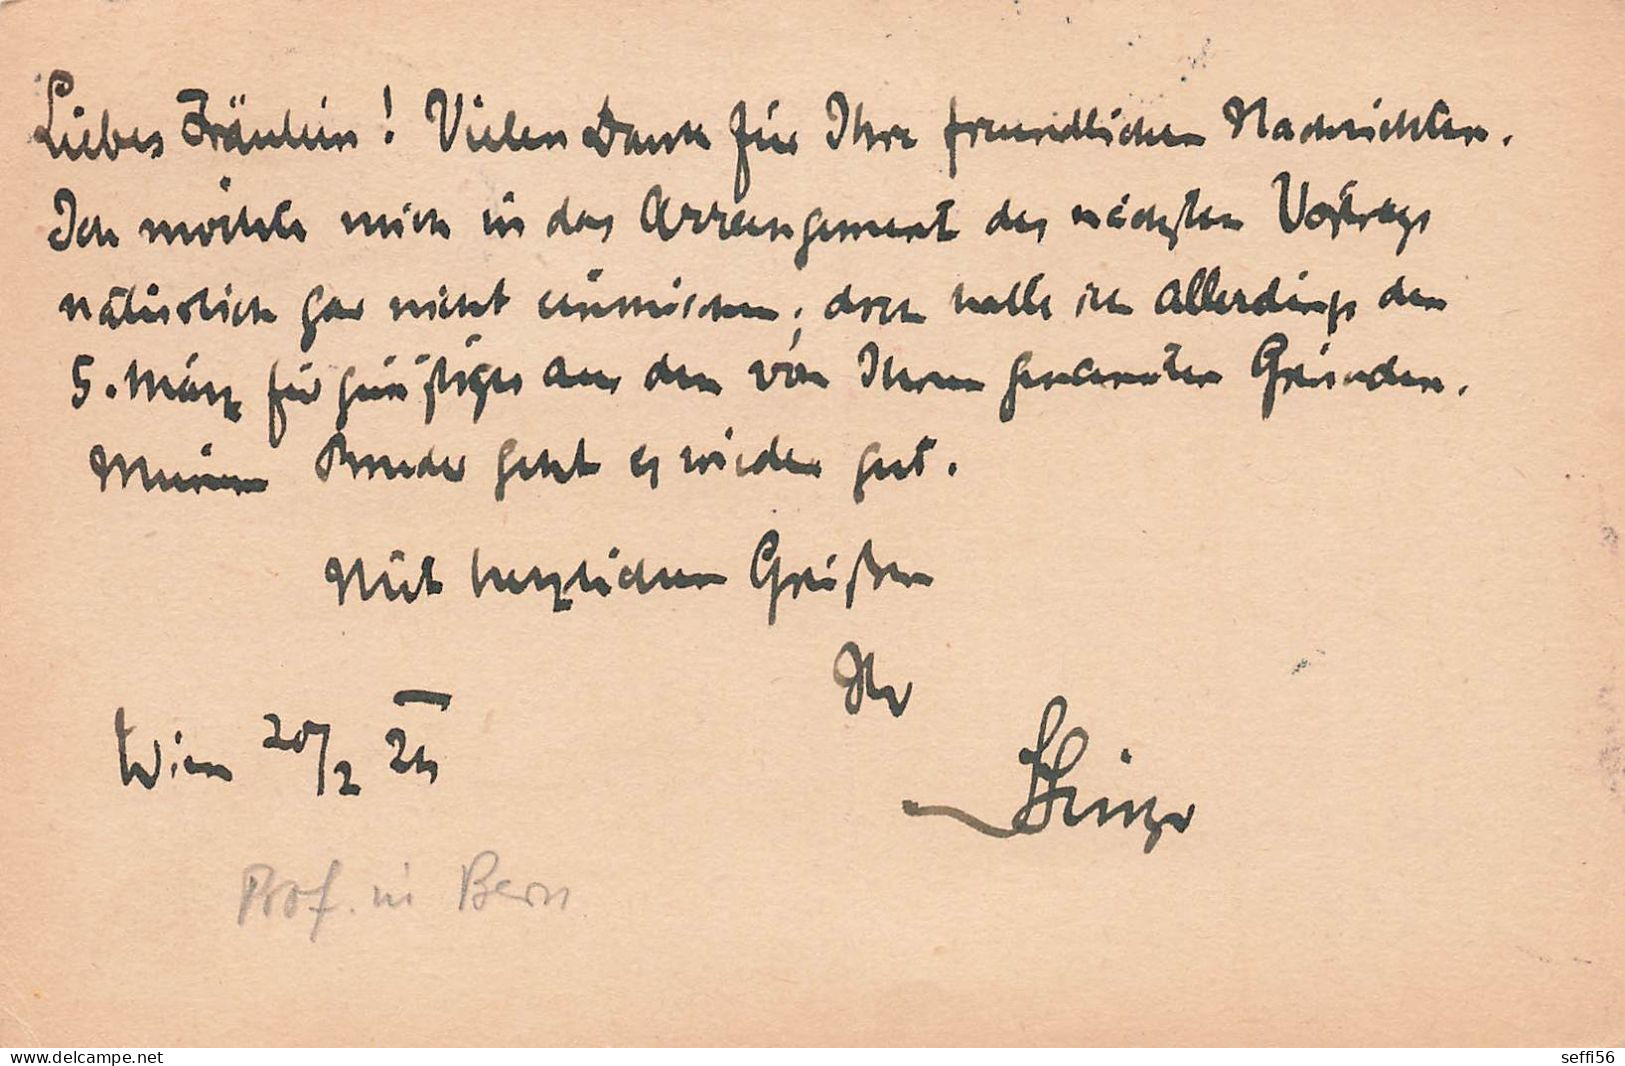 Liebes Fräulein! Vielen Dank für Ihre freundlichen Nachrichten.
Ich möchte mich in das Arrangement des nächsten Vortrags
natürlich gar nicht einmischen; doch halte ich allerdings den
5. März für günstiger aus den von Ihnen genannten Gründen.
Meinem Bruder geht es wieder gut.
Mit herzlichen Grüßen
Ihr
Wien 20/2
Prof. in Bern
www.delcampe.net
seffi56